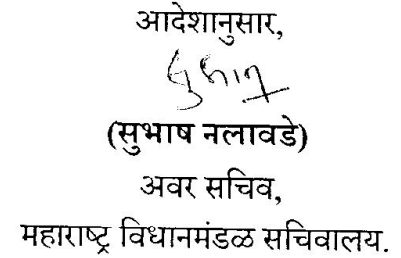 आदेशानुसार,
(सुभाष नलावडे)
अवर सचिव,
महाराष्ट्र विधानमंडळ सचिवालय.